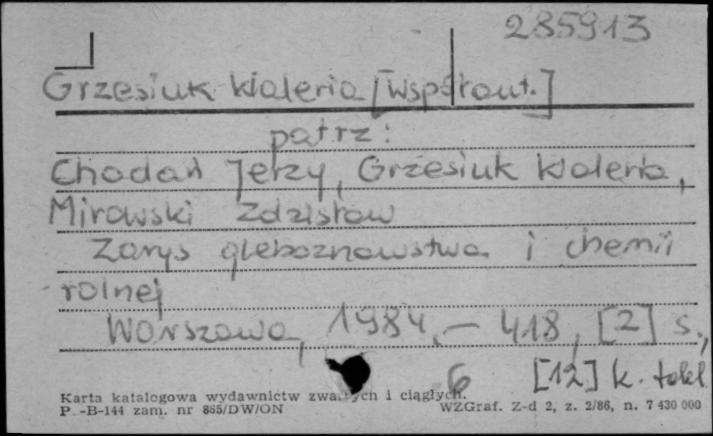 285913
Grzesiuk Waleria [współaut.]
patrz:
Chodań Jerzy, Grzesiuk Waleria,
Mirowski Zdzisław
Zarys gleboznawstwa i chemii
rolnej
Warszawa, 1984, – 418, [2] s.,
6 [12] k. tabl
Karta katalogowa wydawnictw zwartych i ciągłych.
P -B-144 zam. nr 865/DW/ON WZGraf. Z-d 2, z. 2/86, n. 7 430 000